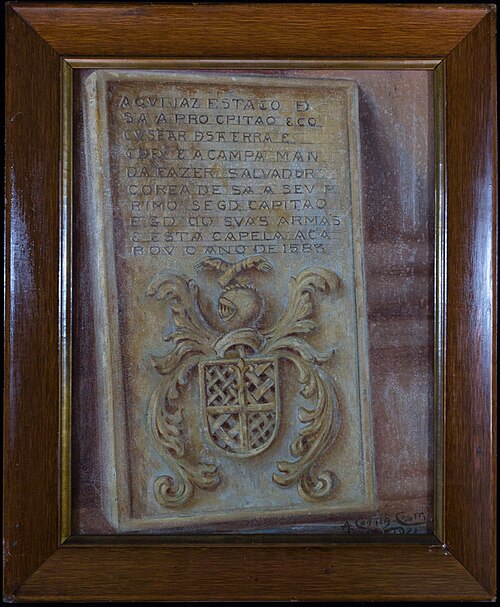 AQVI JAZ ESTACO D
SA A PRO CPITAO & CO
DSTA TERRA E
E A CAMPA MAN
DA FAZER SALVADOR
COREA DE SA A SEV P
RIMO SEGD CAPITAO
E GD CO SVAS ARMAS
E ESTA CAPELA ACA
BOV O ANO DE 1583
A.